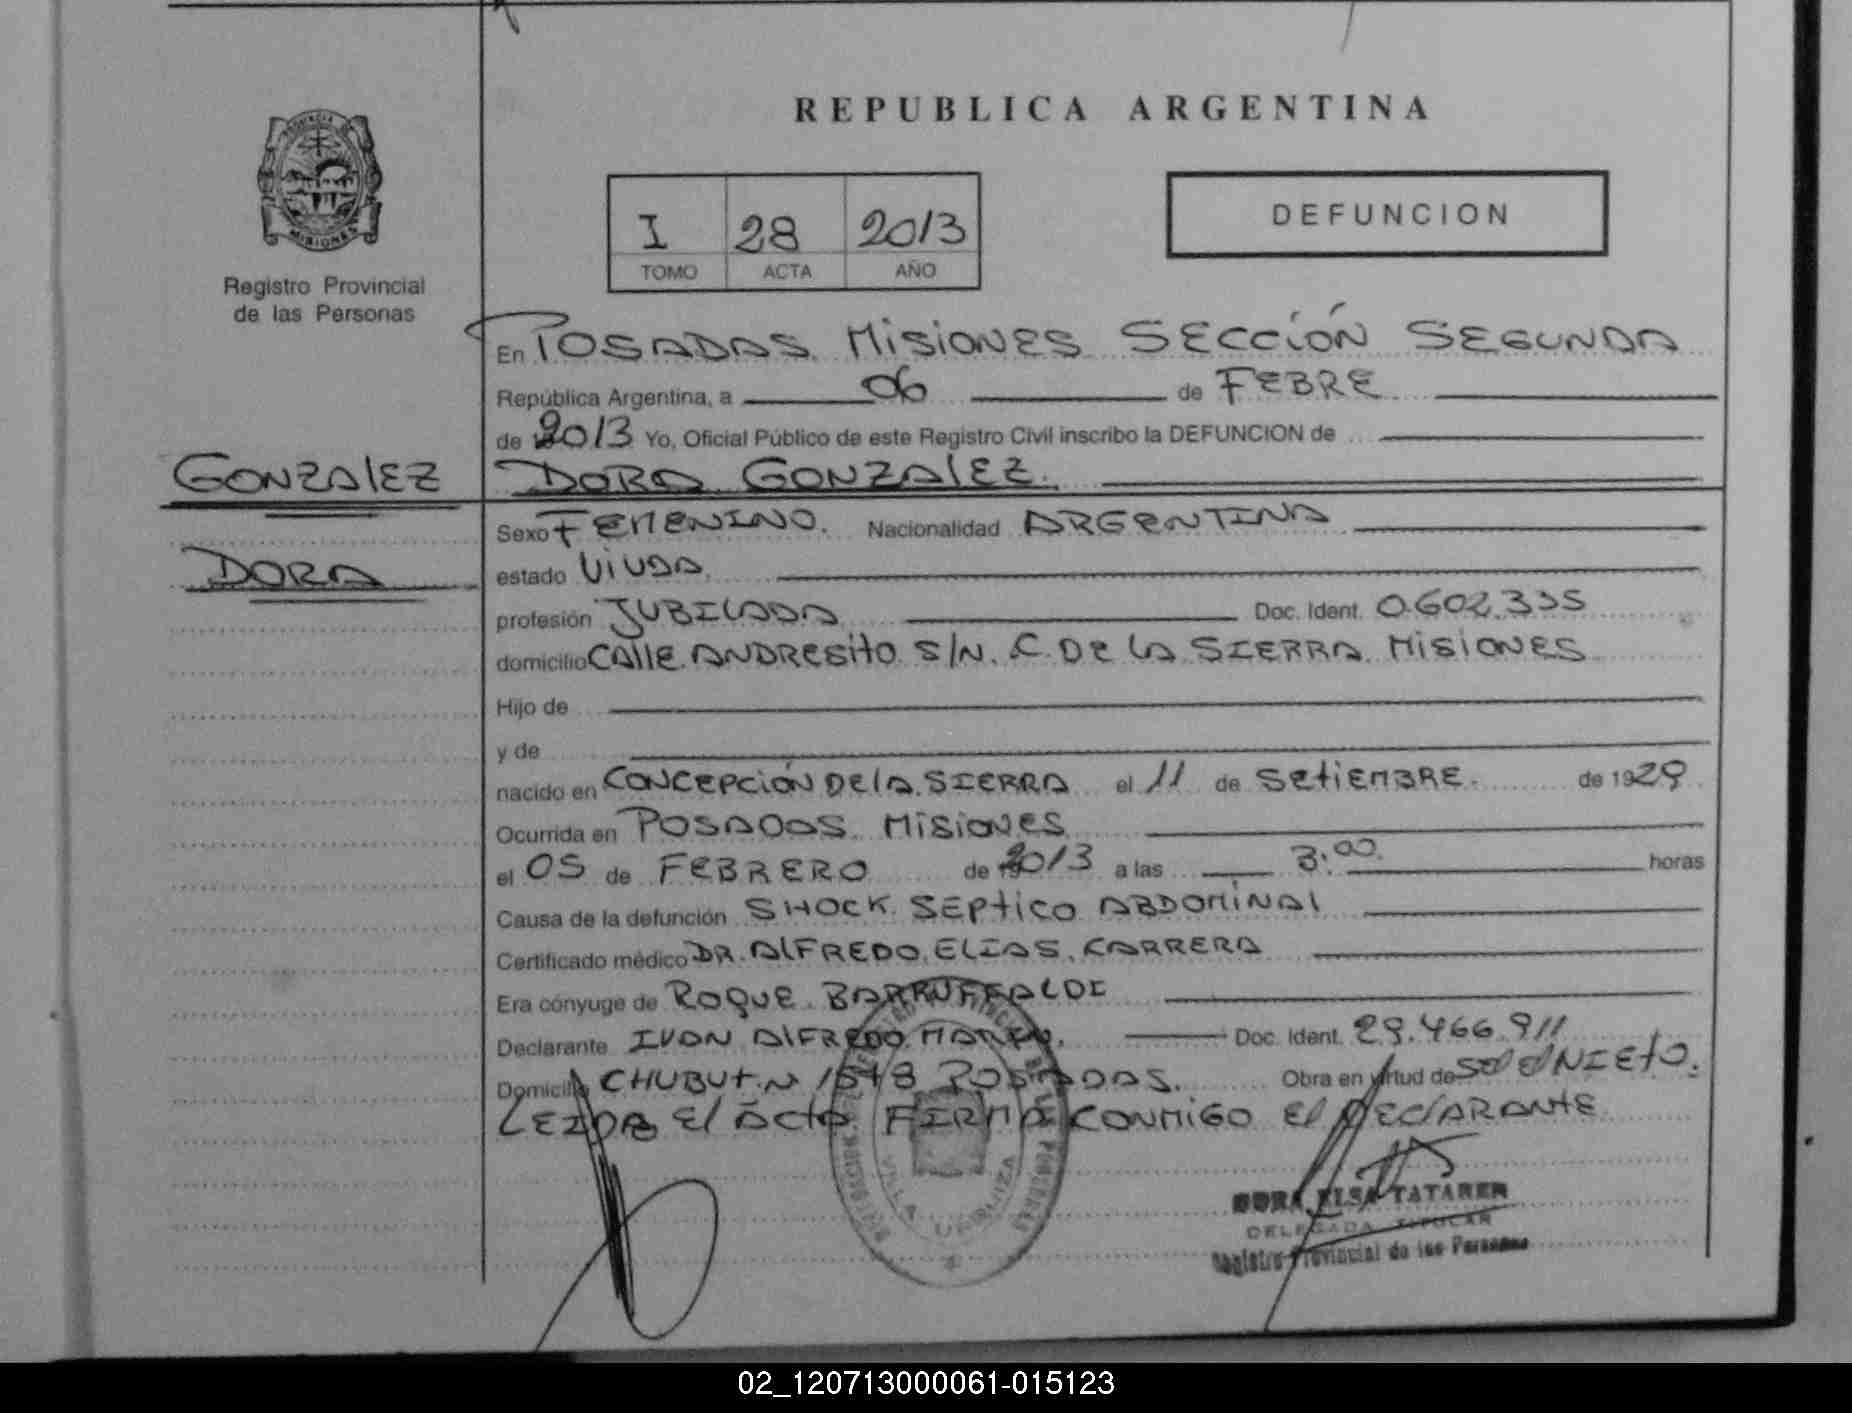 REPUBLICA ARGENTINA
PROVINCIA DE
MISIONES
Registro Provincial
de las Personas
I 28 2013
TOMO ACTA AÑO
DEFUNCION
En POSADAS MISIONES SECCIÓN SEGUNDA
República Argentina, a 06 de FEBRE
de 2013 Yo, Oficial Público de este Registro Civil inscribo la DEFUNCION de
GONZALEZ
DORA GONZALEZ.
DORA
Sexo FEMENINO. Nacionalidad ARGENTINA
estado VIUDA
profesión JUBILADA Doc. Ident. 0.602.335
domicilio CALLE ANDRESITO S/N. C. DE LA SIERRA MISIONES
Hijo de
y de
nacido en CONCEPCIÓN DE LA SIERRA el 11 de SETIEMBRE. de 1929
Ocurrida en POSADAS MISIONES
el 05 de FEBRERO de 2013 a las 3:00 horas
Causa de la defunción SHOCK SEPTICO ABDOMINAL
Certificado médico DR. ALFREDO ELIAS CARRERA
Era cónyuge de ROQUE BARRUFFALDI
Declarante IVAN ALFREDO Doc. Ident. 29.466.911
Domicilio CHUBUT N 1548 POSADAS. Obra en virtud de SER EL NIETO.
LEIDA EL ACTA FIRMA CONMIGO EL DECLARANTE
VILLA URQUIZA
DORA ELSA TATAREN
DELEGADA TITULAR
Registro Provincial de las Personas
02_120713000061-015123